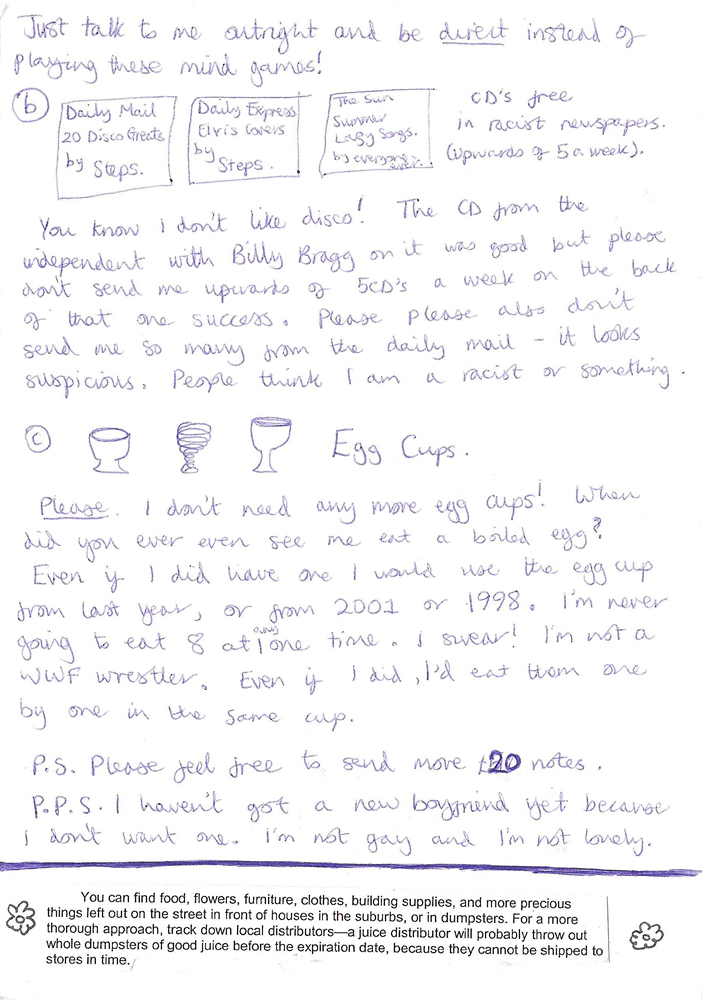 Just talk to me outright and be direct instead of
playing these mind games!
b
Daily Mail
20 Disco Greats
by Steps.
Daily Express
Elvis Covers
by
Steps.
The Sun
Summer
Lazy Songs.
by everyone ever.
CD's free
in racist newspapers.
(upwards of 5 a week).
You know I don't like disco! The CD from the
independent with Billy Bragg on it was good but please
don't send me upwards of 5CD's a week on the back
of that one success. Please please also don't
send me so many from the daily mail - it looks
suspicious. People think I am a racist or something.
c
Egg Cups.
Please. I don't need any more egg cups! When
did you ever even see me eat a boiled egg?
Even if I did have one I would use the egg cup
from last year, or from 2001 or 1998. I'm never
going to eat 8 at any one time. I swear! I'm not a
WWF wrestler. Even if I did, I'd eat them one
by one in the same cup.
P.S. Please feel free to send more £20 notes.
P.P.S. I haven't got a new boyfriend yet because
I don't want one. I'm not gay and I'm not lonely.
You can find food, flowers, furniture, clothes, building supplies, and more precious
things left out on the street in front of houses in the suburbs, or in dumpsters. For a more
thorough approach, track down local distributors—a juice distributor will probably throw out
whole dumpsters of good juice before the expiration date, because they cannot be shipped to
stores in time.